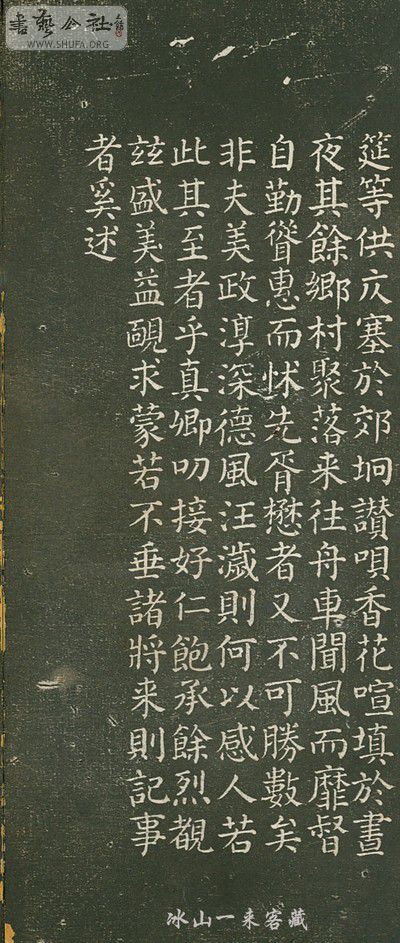 書藝公社
WWW.SHUFA.ORG
筵等供仄塞於郊坰讚唄香花喧填於晝
夜其餘鄉村聚落来往舟車聞風而靡督
自勤聳惠而怵先胥懋者又不可勝數矣
非夫美政淳深德風汪濊則何以感人若
此其至者乎真卿叨接好仁飽承餘烈覩
兹盛美益覥求蒙若不垂諸將来則記事
者奚述
冰山一来客藏